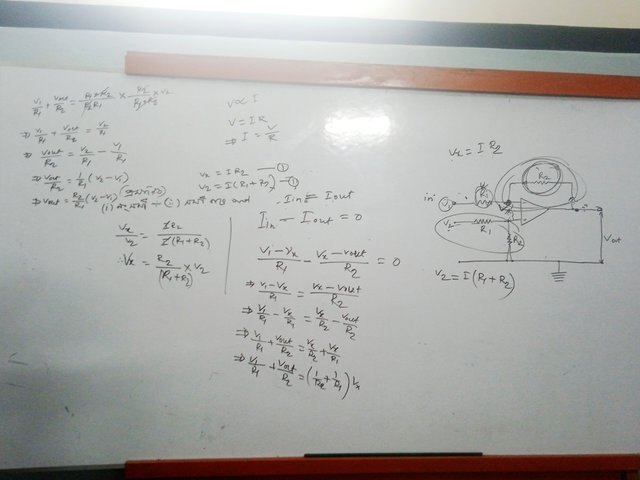 V₁/R₁ + Vout/R₂ = R₁+R₂/R₂R₁ × R₂/R₁+R₂ × V₂
⇒ V₁/R₁ + Vout/R₂ = V₂/R₁
⇒ Vout/R₂ = V₂/R₁ − V₁/R₁
⇒ Vout/R₂ = 1/R₁ (V₂−V₁)
⇒ Vout = R₂/R₁ (V₂−V₁)
V ∝ I
V = IR
⇒ I = V/R
Vx = IR₂ — ①
V₂ = I(R₁+R₂) — ②
Vx/V₂ = IR₂/I(R₁+R₂)
∴ Vx = R₂/(R₁+R₂) × V₂
Iin = Iout
Iin − Iout = 0
V₁−Vx/R₁ − Vx−Vout/R₂ = 0
⇒ V₁−Vx/R₁ = Vx−Vout/R₂
⇒ V₁/R₁ − Vx/R₁ = Vx/R₂ − Vout/R₂
⇒ V₁/R₁ + Vout/R₂ = Vx/R₂ + Vx/R₁
⇒ V₁/R₁ + Vout/R₂ = (1/R₂ + 1/R₁) Vx
Vx = IR₂
R₂
in
R₁
V₁
V₂
R₁
R₂
Vout
V₂ = I(R₁+R₂)